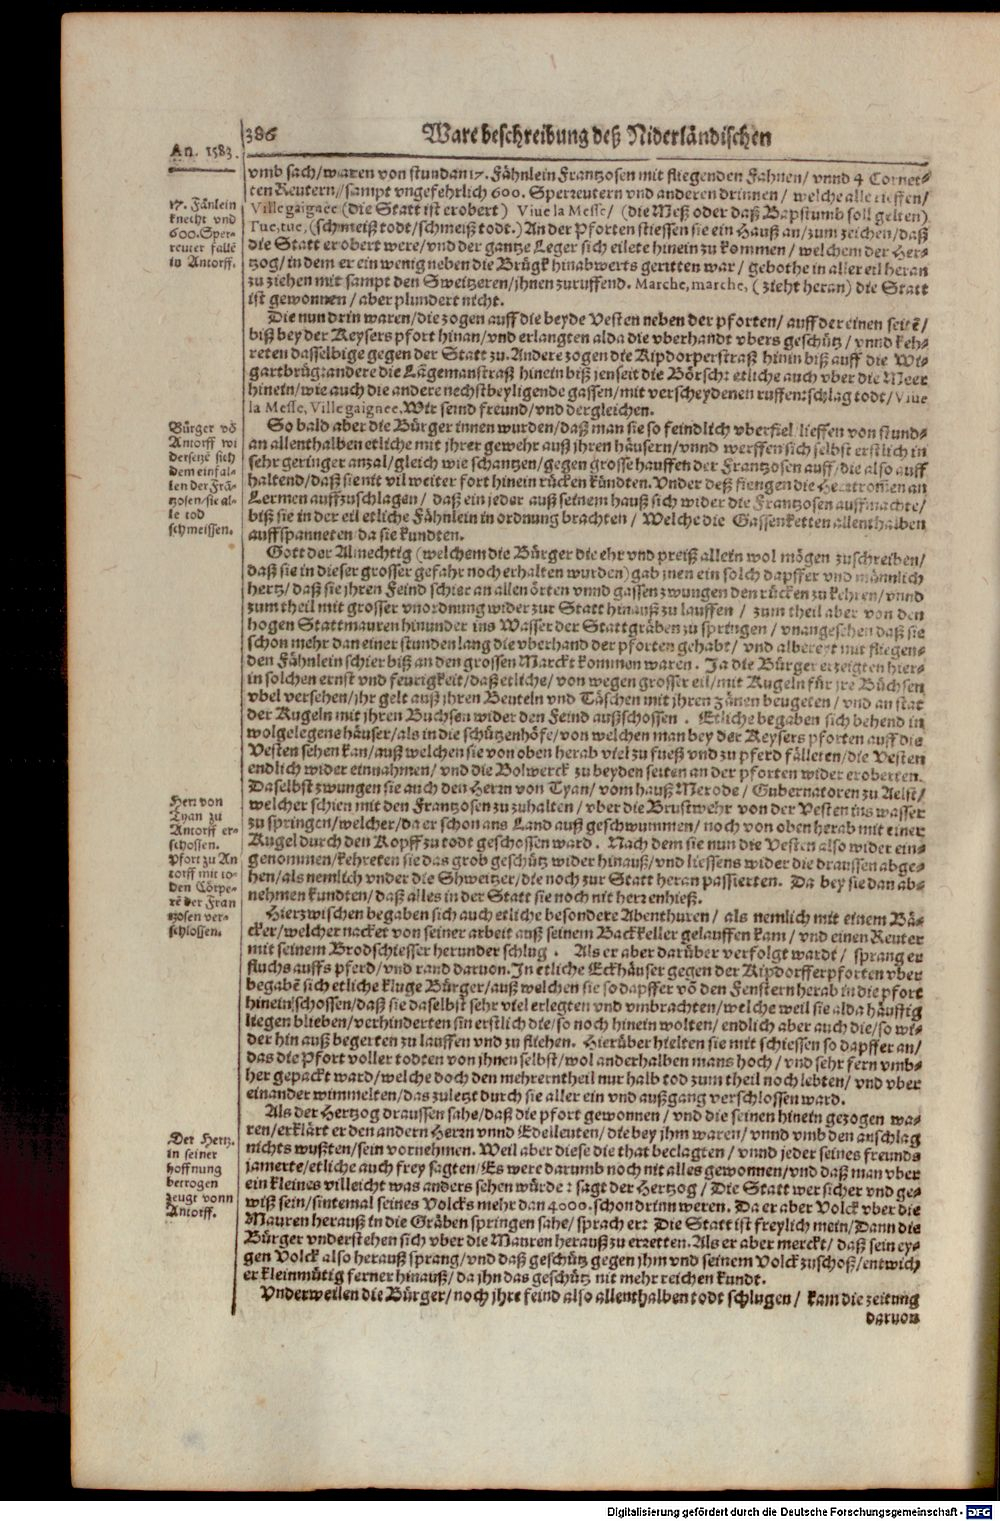 386 Ware beschreibung deß Niderländischen
An. 1583.
vmb sach/waren von stundan 17. Fähnlein Frantzosen mit fliegenden Fahnen/ vnnd 4 Cornet-
ten Reutern/sampt vngefehrlich 600. Sperreutern vnd anderen drinnen/ welche alle rieffen/
Ville gaignee (die Statt ist erobert) Viue la Messe/ (die Meß oder daß Bapstumb soll gelten)
Tue, tue, (schmeißt todt/schmeißt todt.) An der Pforten stiessen sie ein Hauß an/zum zeichen/daß
die Statt erobert were/vnd der gantze Leger sich eilete hinein zu kommen/ welchem der Her-
tzog/in dem er ein wenig neben die Brügk hinabwerts geritten war/ gebothe in aller eil heran
zu ziehen mit sampt den Sweitzeren/jhnen zuruffend. Marche, marche, (zieht heran) die Statt
ist gewonnen/aber plundert nicht.
17. Fänlein
knecht vnd
600. Sper-
reuter fallē
in Antorff.
Die nun drin waren/die zogen auff die beyde Vesten neben der pforten/ auff der einen seitē/
biß bey der Keysers pfort hinan/vnd erlangten alda die vberhandt vbers geschütz/ vnnd keh-
reten dasselbige gegen der Statt zu. Andere zogen die Kipdorperstraß hinin biß auff die Wi-
gartbrüg: andere die Lägemanstraß hinein biß jenseit die Börsch: etliche auch vber die Meer
hinein/wie auch die andere nechstbeyligende gassen/mit verscheydenen ruffen: schlag todt/Viue
la Messe, Ville gaignee. Wir seind freund/vnd dergleichen.
Bürger vō
Antorff wi
dersetzē sich
dem einfal-
len der Frā-
tzosen/sie al-
le tod
schmeissen.
So bald aber die Bürger innen wurden/daß man sie so feindlich vberfiel/lieffen von stund-
an allenthalben etliche mit jhrer gewehr auß jhren häusern/vnnd werffen sich selbst erstlich in
sehr geringer anzal/gleich wie schantzen/gegen grosse hauffen der Frantzosen auff/die also auff
haltend/daß sie nit vil weiter fort hinein rücken kündten. Vnder deß fiengen die Heertrommen an
Lermen auffzuschlagen/ daß ein jeder auß seinem hauß sich wider die Frantzosen auffmachte/
biß sie in der eil etliche Fähnlein in ordnung brachten/ Welche die Gassenketten allenthalben
auffspanneten da sie kundten.
Gott der Almechtig (welchem die Bürger die ehr vnd preiß allein wol mögen zuschreiben/
daß sie in dieser grosser gefahr noch erhalten wurden) gab jnen ein solch dapffer vnd männlich
hertz/daß sie jhren Feind schier an allen örten vnnd gassen zwungen den rücken zu kehren/vnnd
zum theil mit grosser vnordnung wider zur Statt hinauß zu lauffen/ zum theil aber von den
hogen Stattmauren hinunder ins Wasser der Stattgräben zu springen/ vnangesehen daß sie
schon mehr dan einer stunden lang die vberhand der pforten gehabt/ vnd albereyt mit fliegen-
den Fähnlein schier biß an den grossen Marckt kommen waren. Ja die Bürger erzeigten hier-
in solchen ernst vnd feurigkeit/daß etliche/von wegen grosser eil/mit Kugeln für jre Büchsen
vbel versehen/jhr gelt auß jhren Beuteln vnd Täschen mit jhren zänen beugeten/ vnd an stat
der Kugeln mit jhren Buchsen wider den Feind außschossen. Etliche begaben sich behend in
wolgelegene häuser/als in die schützenhöfe/von welchen man bey der Keysers pforten auff die
Vesten sehen kan/auß welchen sie von oben herab viel zu fueß vnd zu pferd fälleten/die Vesten
endlich wider einnahmen/ vnd die Bolwerck zu beyden seiten an der pforten wider eroberten.
Daselbst zwungen sie auch den Herrn von Tyan/vom hauß Merode/ Gubernatoren zu Aelst/
welcher schien mit den Frantzosen zu zuhalten/ vber die Brustwehr von der Vesten ins wasser
zu springen/welcher/da er schon ans Land auß geschwummen/ noch von oben herab mit einer
Kugel durch den Kopff zu todt geschossen ward. Nach dem sie nun die Vesten also wider ein-
genommen/kehreten sie das grob geschütz wider hinauß/vnd liessens wider die draussen abge-
hen/als nemlich vnder die Shweitzer/die noch zur Statt heran passierten. Da bey sie dan ab-
nehmen kundten/daß alles in der Statt sie noch nit herzenhieß.
Herr von
Tyan zu
Antorff er-
schossen.
Pfort zu An
torff mit to-
den Cörpe-
rē der Fran
tzosen ver-
schlossen.
Hierzwischen begaben sich auch etliche besondere Abenthuren/ als nemlich mit einem Bä-
cker/welcher nacket von seiner arbeit auß seinem Backkeller gelauffen kam/ vnd einen Reuter
mit seinem Brodschiesser herunder schlug. Als er aber darüber verfolgt wardt/ sprang er
fluchs auffs pferd/vnd rand daruon. In etliche Eckhäuser gegen der Kipdorfferpforten vber
begabē sich etliche kluge Bürger/auß welchen sie so dapffer vō den Fenstern herab in die pfort
hinein schossen/daß sie daselbst sehr viel erlegten vnd vmbrachten/welche weil sie alda häuffig
liegen blieben/verhinderten sin erstlich die/so noch hinein wolten/ endlich aber auch die/so wi-
der hin auß begerten zu lauffen vnd zu fliehen. Hierüber hielten sie mit schiessen so dapffer an/
das die Pfort voller todten von jhnen selbst/wol anderhalben mans hoch/ vnd sehr fern vmb-
her gepackt ward/welche doch den mehrerntheil nur halb tod zum theil noch lebten/ vnd vber
einander wimmelten/das zuletzt durch sie aller ein vnd außgang verschlossen ward.
Als der Hertzog draussen sahe/daß die pfort gewonnen/ vnd die seinen hinein gezogen wa-
ren/erklärt er den andern Herrn vnnd Edelleuten/die bey jhm waren/ vnnd vmb den anschlag
nichts wußten/sein vornehmen. Weil aber diese die that beclagten/ vnnd jeder seines freunds
jamerte/etliche auch frey sagten/Es were darumb noch nit alles gewonnen/vnd daß man vber
ein kleines villeicht was anders sehen würde: sagt der Hertzog/ Die Statt wer sicher vnd ge-
wiß sein/sintemal seines Volcks mehr dan 4000. schon drinn weren. Da er aber Volck vber die
Mauren herauß in die Gräben springen sahe/sprach er: Die Statt ist freylich mein/Dann die
Bürger vnderstehen sich vber die Mauren herauß zu erretten. Als er aber merckt/ daß sein ey-
gen Volck also herauß sprang/vnd daß geschütz gegen jhm vnd seinem Volck zuschoß/entwich
er kleinmütig ferner hinauß/da jhn das geschütz nit mehr reichen kundt.
Der Hertz.
in seiner
hoffnung
betrogen
zeugt vonn
Antorff.
Vnderweilen die Bürger/noch jhre feind also allenthalben todt schlugen/ kam die zeitung
daruon
Digitalisierung gefördert durch die Deutsche Forschungsgemeinschaft - DFG